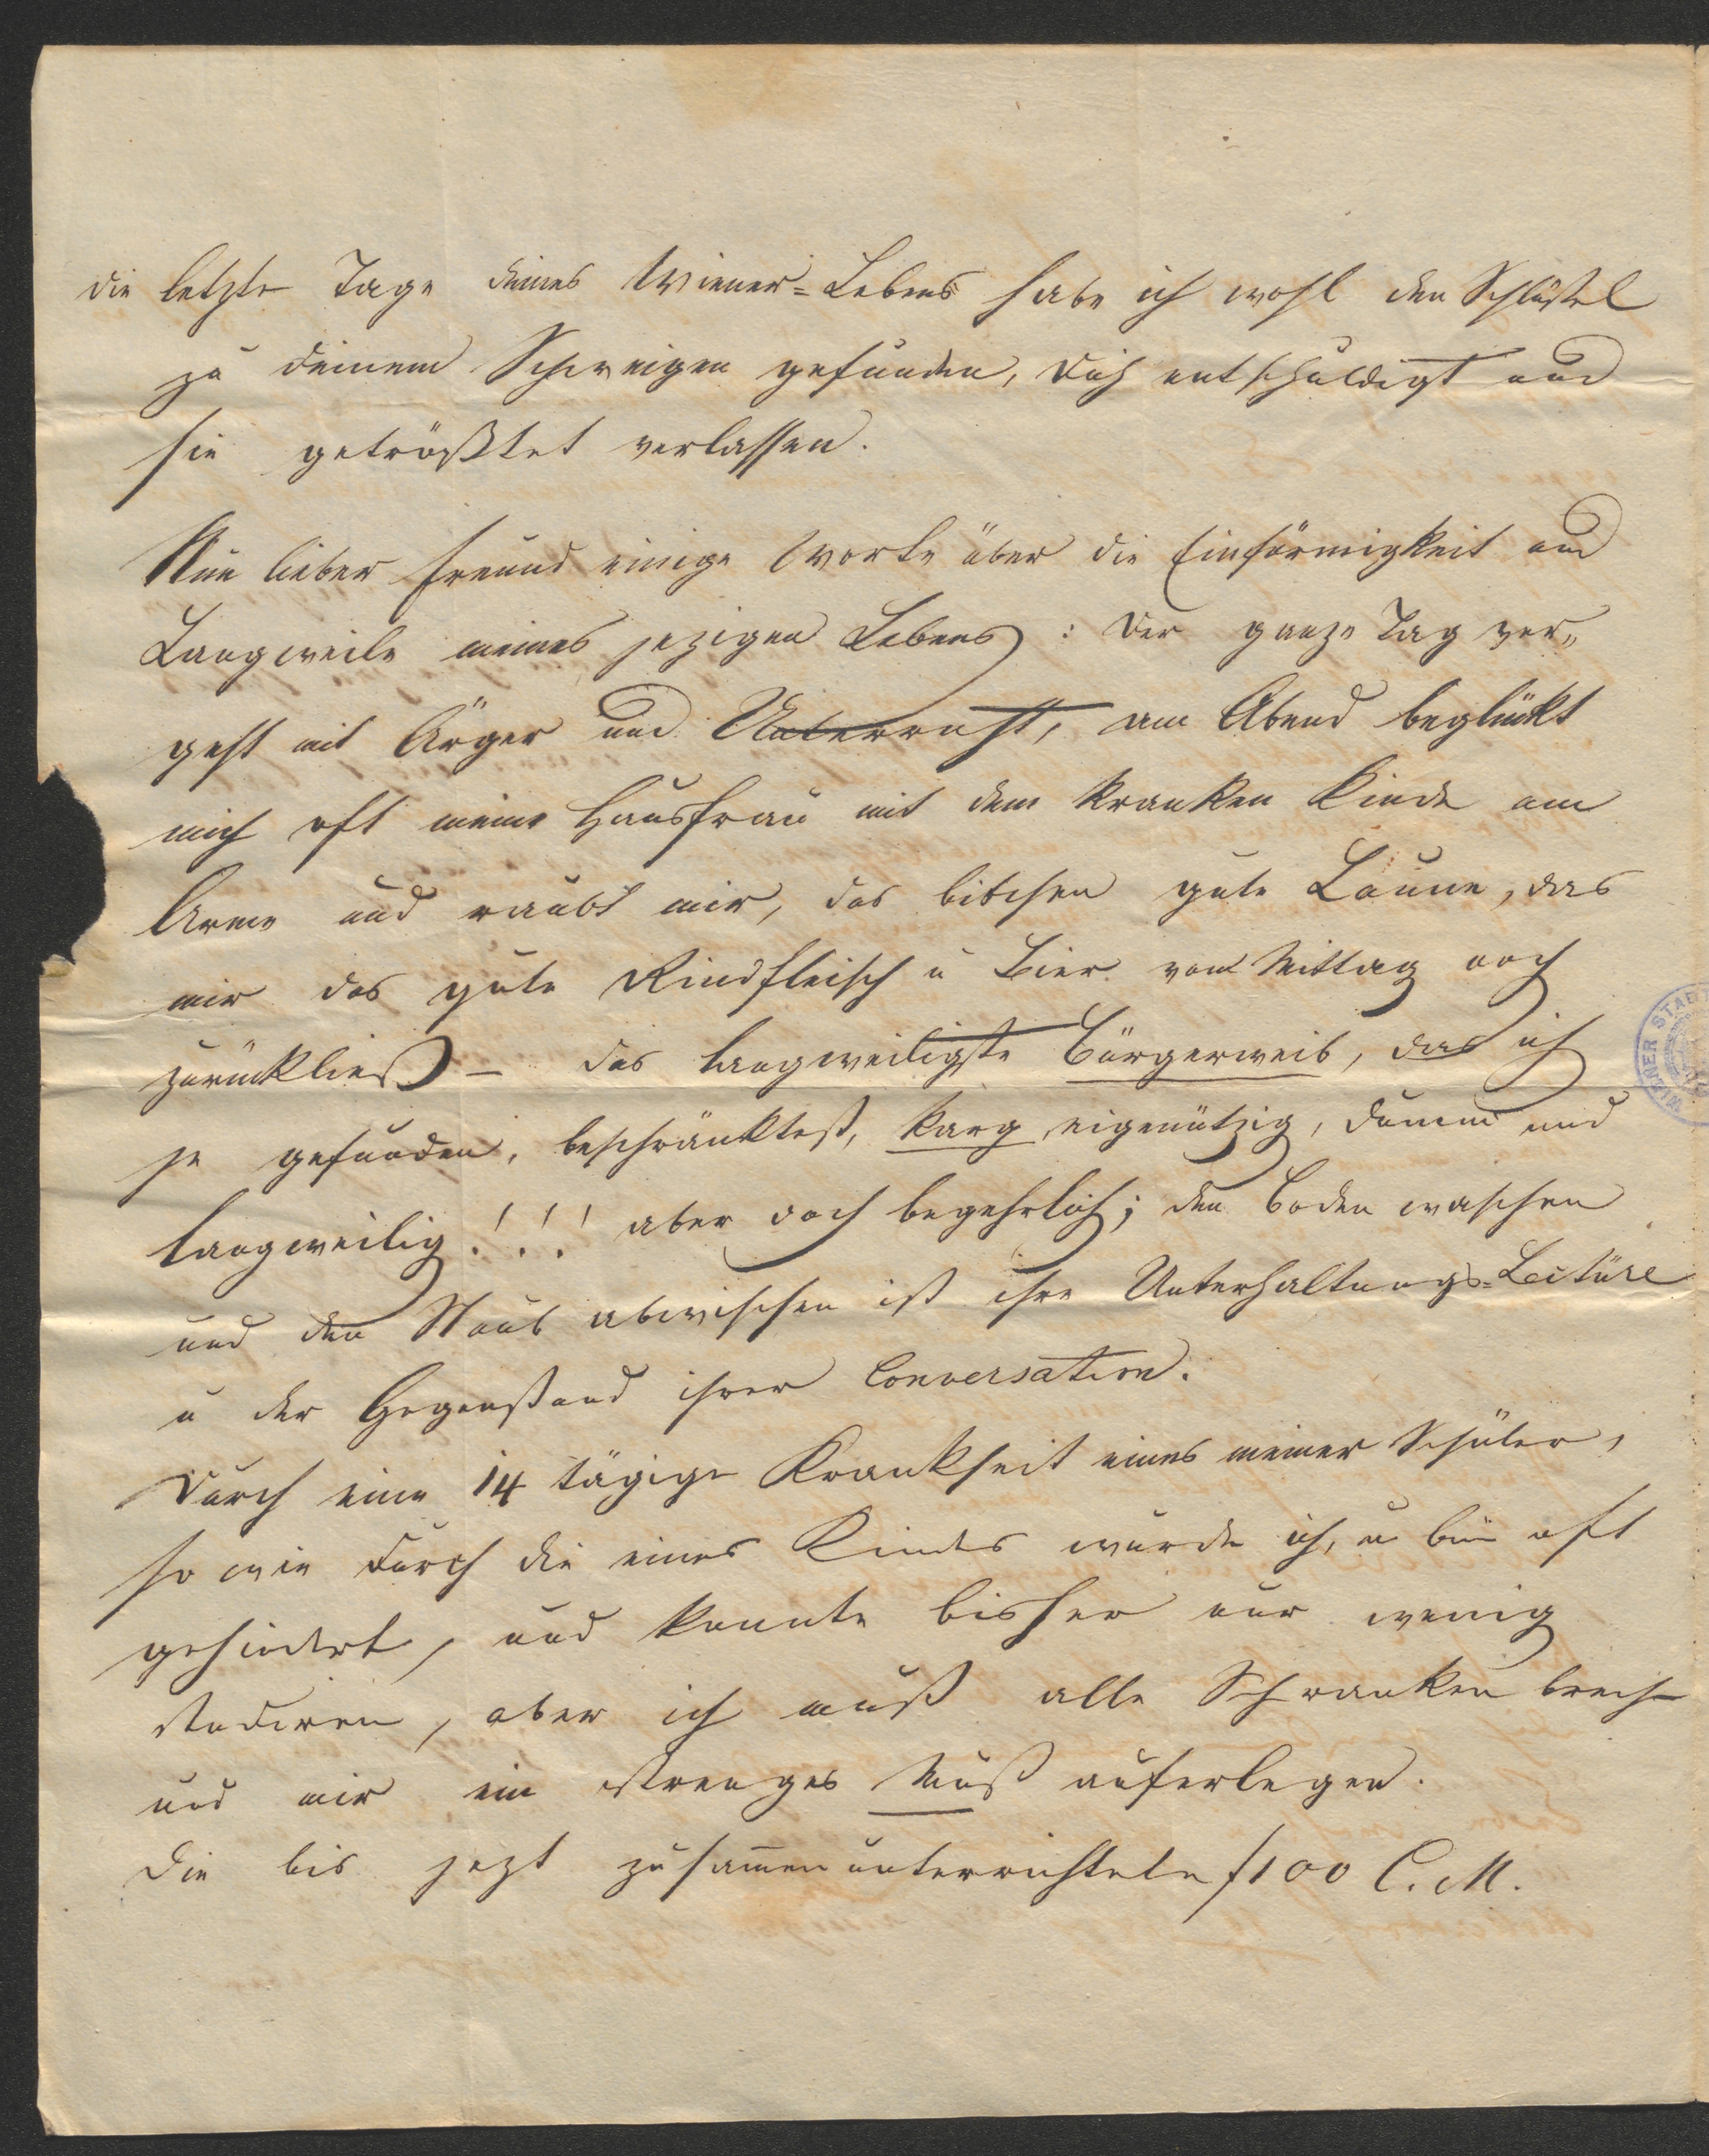 die letzte Tage deines Wiener=Lebens habe ich wohl den Schlüßel
zu deinem Schweigen gefunden, dich entschuldigt und
sie getrößtet verlassen.
Nun lieber Freund einige Worte über die Einförmigkeit und
Langweile meines jezigen Lebens : Der ganze Tag ver„
geht mit Ärger und Unterricht, am Abend beglükt
mich oft meine Hausfrau mit dem kranken Kinde am
Arme und raubt mir, das bitchen gute Laune, das
mir das gute Rindfleisch u Bier vom Mittag noch
zurükließ – das langweiligste Bürgerweib, das ich
je gefunden, beschränktest, karg eigenützig, dumm und
langweilig!!! aber doch begehrlich; den Boden waschen
und den Staub abwischen ist ihre Unterhaltungs=Lectüre
u der Gegenstand ihrer Conversation.
Durch eine 14 tägige Krankheit eines meiner Schüler,
so wie durch die eines Kindes wurde ich, u bin oft
gehindert, und konnte bisher nur wenig
studiren, aber ich muß alle Schranken brech
und mir ein strenges Muß auferlegen.
Die bis jezt zusammenunterrichtete f100 C. M.
WIENER STADT